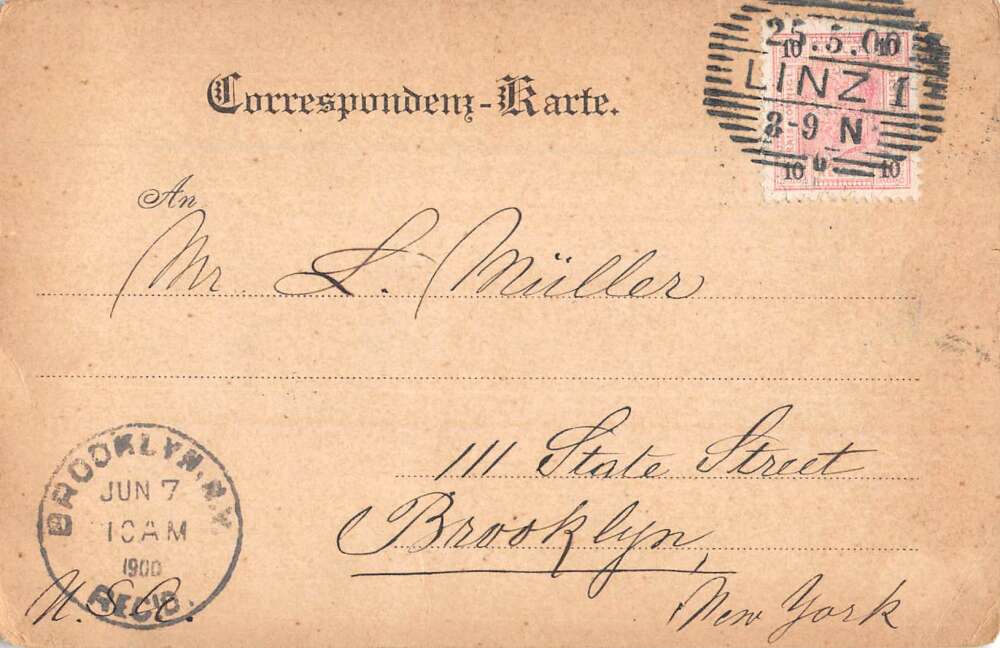 Correspondenz-Karte.
25.5.00
LINZ 1
8-9 N
10 10
10 10
An
Mr. L. Müller
111 State Street
Brooklyn,
New York
U.S.A.
BROOKLYN, N.Y.
JUN 7
10 AM
1900
REC'D.